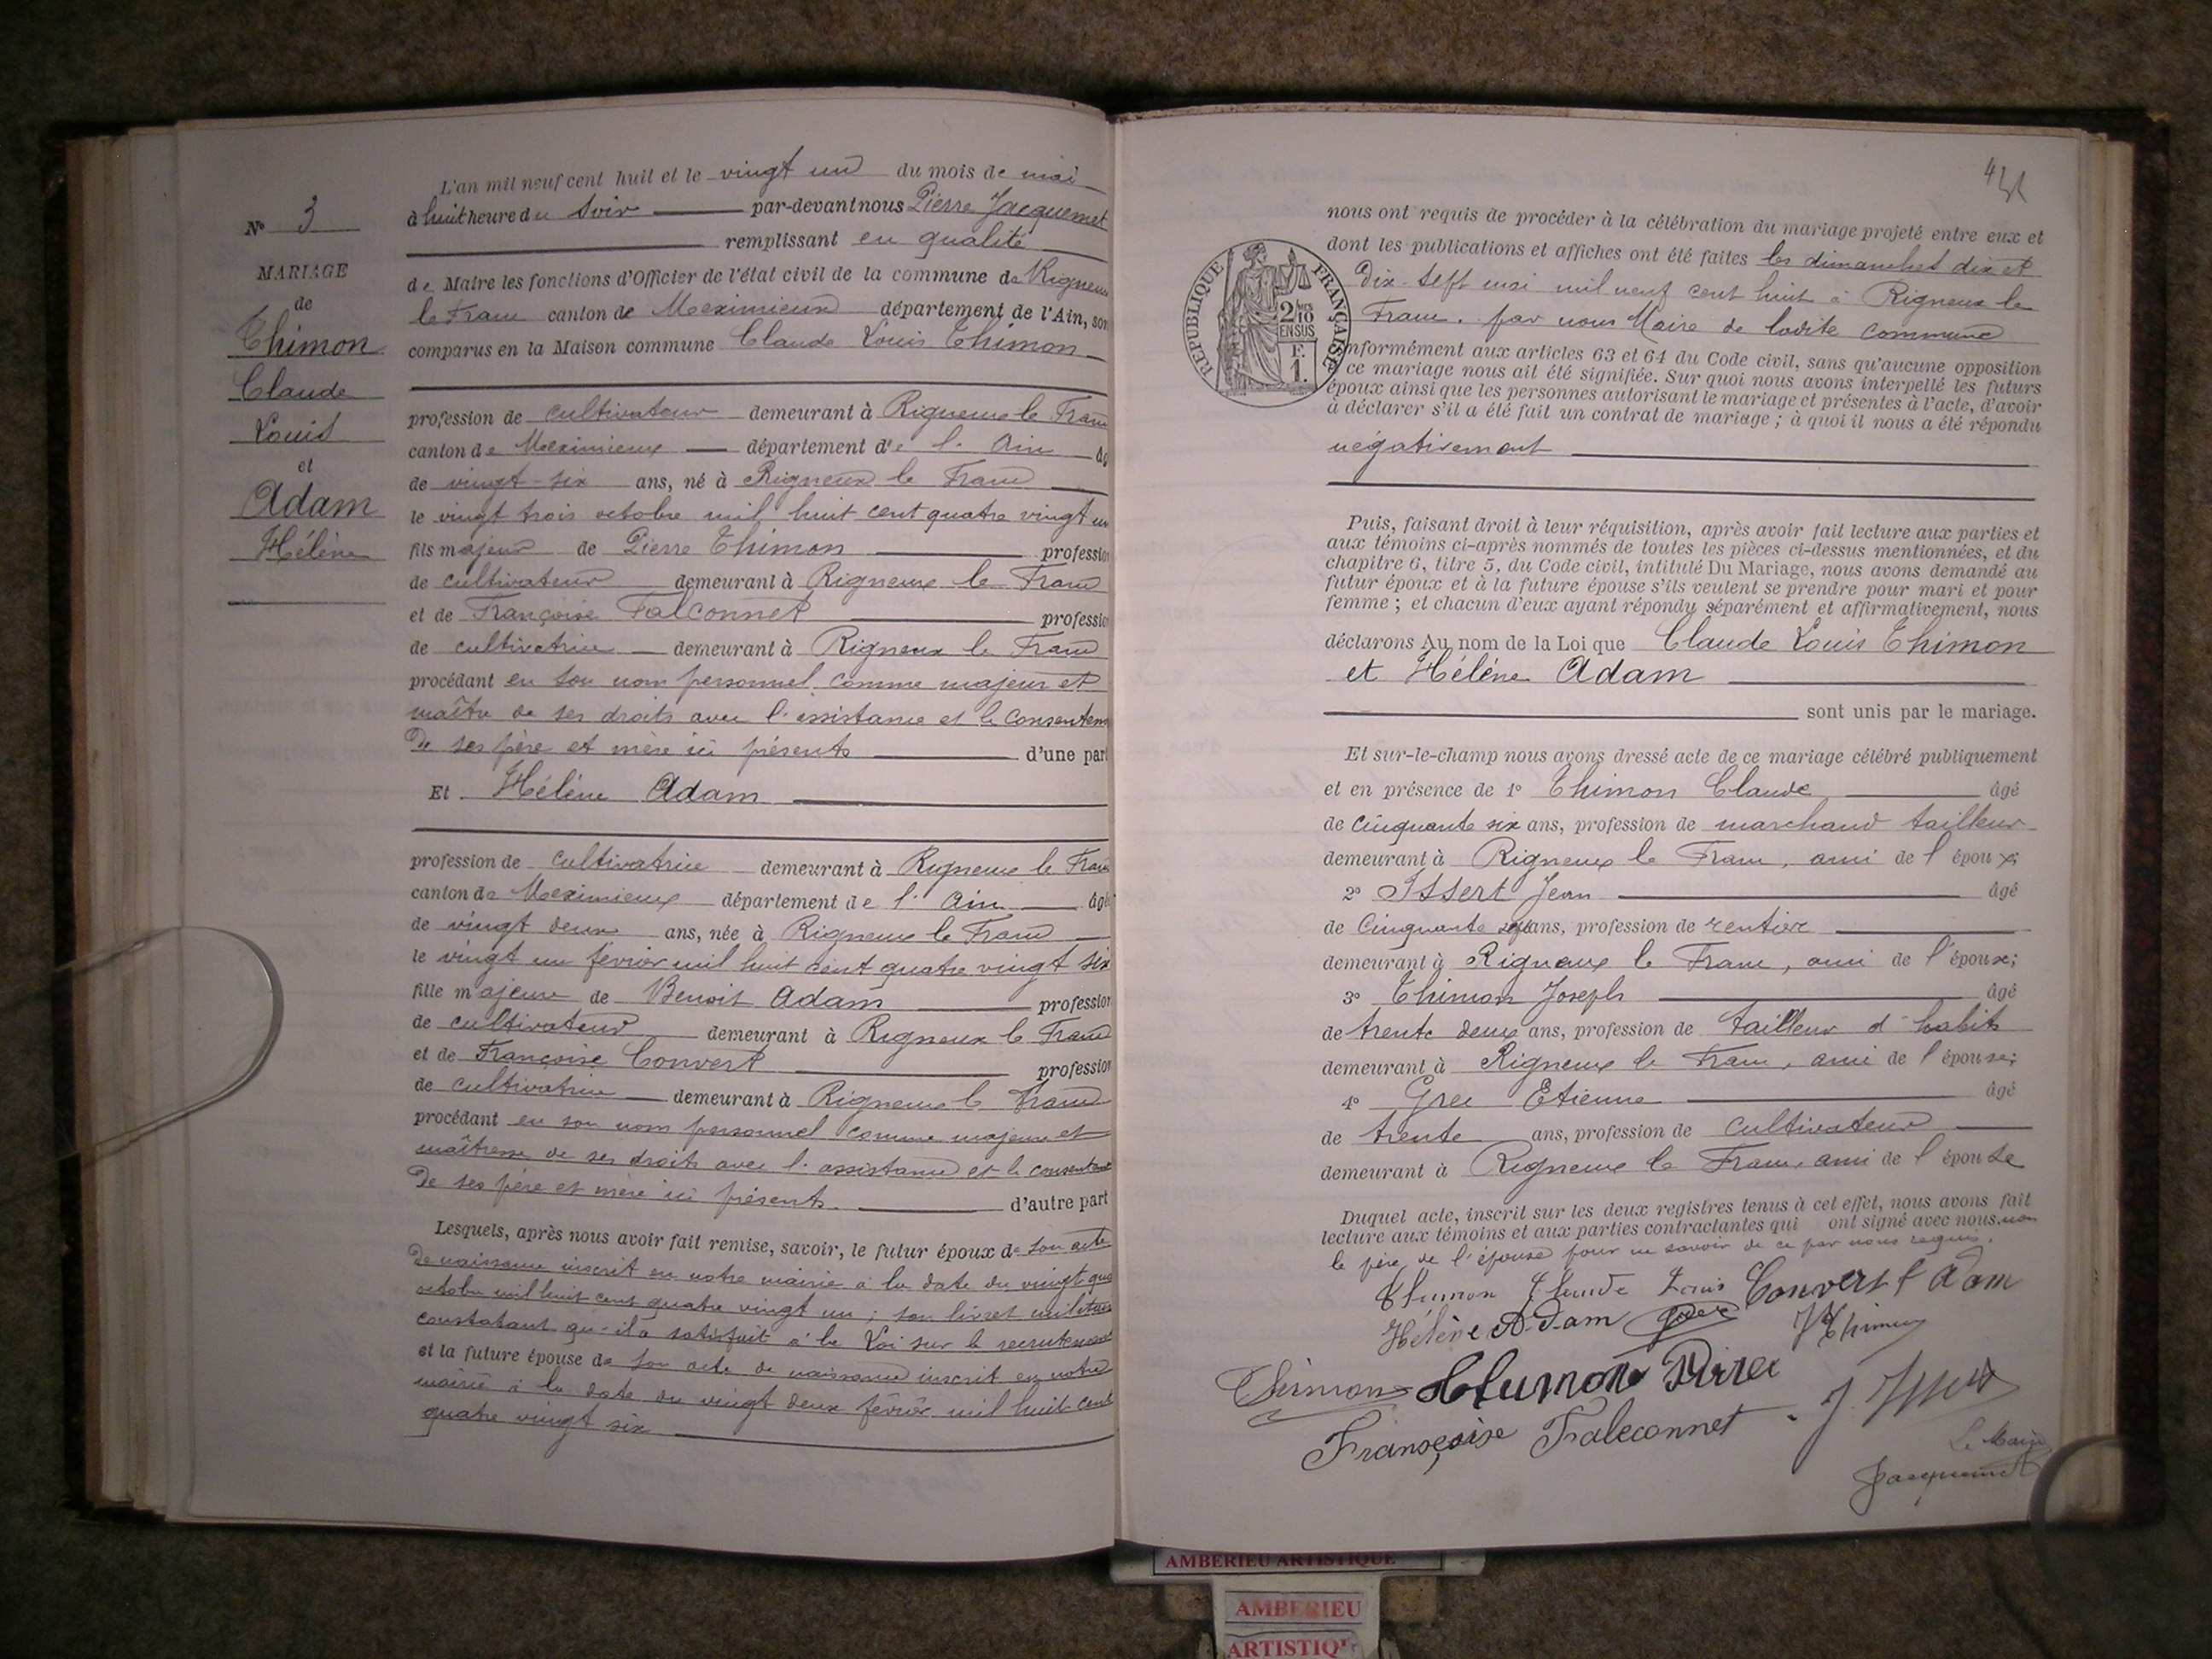 N° 3
MARIAGE
de
Thimon
Claude
Louis
et
Adam
Hélène
L'an mil neuf cent huit et le vingt un du mois de mai
à huit heure du soir par-devant nous Pierre Jacquemet
remplissant en qualité
de Maire les fonctions d'Officier de l'état civil de la commune de Rigneux
le Franc canton de Meximieux département de l'Ain, son
comparus en la Maison commune Claude Louis Thimon
profession de cultivateur demeurant à Rigneux le Franc
canton de Meximieux département de l'Ain âg
de vingt-six ans, né à Rigneux le Franc
le vingt trois octobre mil huit cent quatre vingt un
fils majeur de Pierre Thimon profession
de cultivateur demeurant à Rigneux le Franc
et de Françoise Falconnet professio
de cultivatrice demeurant à Rigneux le Franc
procédant en son nom personnel comme majeur et
maître de ses droits avec l'assistance et le consentem
de ses père et mère ici présents d'une part
Et Hélène Adam
profession de cultivatrice demeurant à Rigneux le Franc
canton de Meximieux département de l'Ain âgé
de vingt deux ans, née à Rigneux le Franc
le vingt un février mil huit cent quatre vingt six
fille majeure de Benoit Adam profession
de cultivateur demeurant à Rigneux le Franc
et de Françoise Convert profession
de cultivatrice demeurant à Rigneux le Franc
procédant en son nom personnel comme majeure et
maîtresse de ses droits avec l'assistance et le consentement
de ses père et mère ici présents. d'autre part
Lesquels, après nous avoir fait remise, savoir, le futur époux de son acte
de naissance inscrit en notre mairie à la date du vingt qua
octobre mil huit cent quatre vingt un ; son livret militaire
constatant qu'il a satisfait à la Loi sur le recrutement
et la future épouse de son acte de naissance inscrit en notre
mairie à la date du vingt deux février mil huit cent
quatre vingt six
nous ont requis de procéder à la célébration du mariage projeté entre eux et
dont les publications et affiches ont été faites les dimanches dix et
dix-sept mai mil neuf cent huit à Rigneux le
Franc, par nous Maire de ladite commune
REPUBLIQUE FRANÇAISE
2/10
EN SUS
F.
1.
nformément aux articles 63 et 64 du Code civil, sans qu'aucune opposition
ce mariage nous ait été signifiée. Sur quoi nous avons interpellé les futurs
époux ainsi que les personnes autorisant le mariage et présentes à l'acte, d'avoir
à déclarer s'il a été fait un contrat de mariage ; à quoi il nous a été répondu
négativement
Puis, faisant droit à leur réquisition, après avoir fait lecture aux parties et
aux témoins ci-après nommés de toutes les pièces ci-dessus mentionnées, et du
chapitre 6, titre 5, du Code civil, intitulé Du Mariage, nous avons demandé au
futur époux et à la future épouse s'ils veulent se prendre pour mari et pour
femme ; et chacun d'eux ayant répondu séparément et affirmativement, nous
déclarons Au nom de la Loi que Claude Louis Thimon
et Hélène Adam
sont unis par le mariage.
Et sur-le-champ nous avons dressé acte de ce mariage célébré publiquement
et en présence de 1° Thimon Claude âgé
de cinquante six ans, profession de marchand tailleur
demeurant à Rigneux le Franc, ami de l'époux;
2° Issert Jean âgé
de cinquante ans, profession de rentier
demeurant à Rigneux le Franc, ami de l'épouse;
3° Thimon Joseph âgé
de trente deux ans, profession de tailleur d'habits
demeurant à Rigneux le Franc, ami de l'épouse;
4° Grec Etienne âgé
de trente ans, profession de cultivateur
demeurant à Rigneux le Franc, ami de l'épouse
Duquel acte, inscrit sur les deux registres tenus à cet effet, nous avons fait
lecture aux témoins et aux parties contractantes qui ont signé avec nous. non
le père de l'épouse pour ne savoir de ce par nous requis.
Thimon Claude Louis Convert f Adam
Hélène Adam Grec J Thimon
Thimon Thimon Pierre J. Issert
Françoise Faleconnet
Le Maire
Jacquemet
AMBERIEU ARTISTIQUE
AMBERIEU
ARTISTIQU